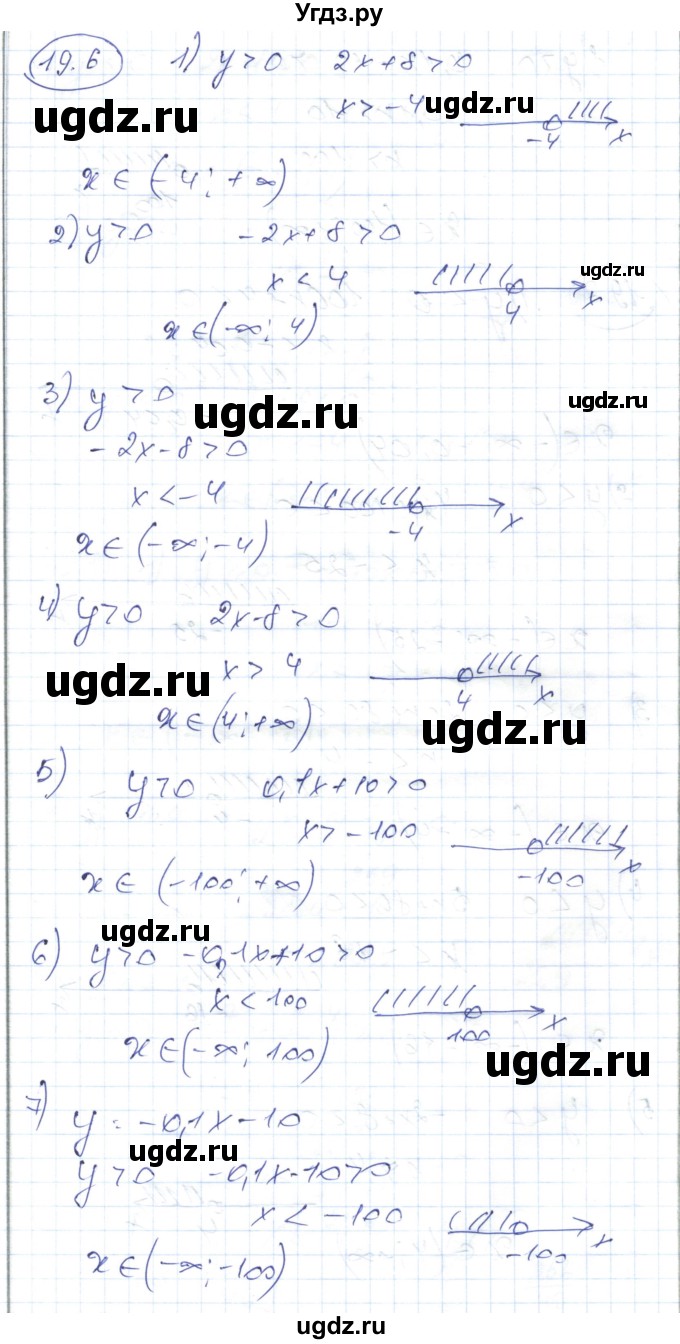 Угдз.ру
19.6 1) y>0 2x+8>0
ugdz.ru x>-4 ugdz.ru
-4 x
x∈(-4;+∞)
2) y>0 -2x+8>0
ugdz.ru
x<4
4 x
x∈(-∞; 4)
3) y>0
ugdz.ru ugdz.ru
-2x-8>0
x<-4
-4 x
x∈(-∞;-4)
4) y>0 2x-8>0
ugdz.ru x>4
4 x
x∈(4;+∞) ugdz.ru
5) y>0 0,1x+10>0
x>-100
-100 x
x∈(-100;+∞)
ugdz.ru
6) y>0 -0,1x+10>0
x<100
100 x
x∈(-∞; 100) ugdz.ru
7) y=-0,1x-10
ugdz.ru
y>0 -0,1x-10>0
x<-100
-100 x
x∈(-∞;-100)
ugdz.ru